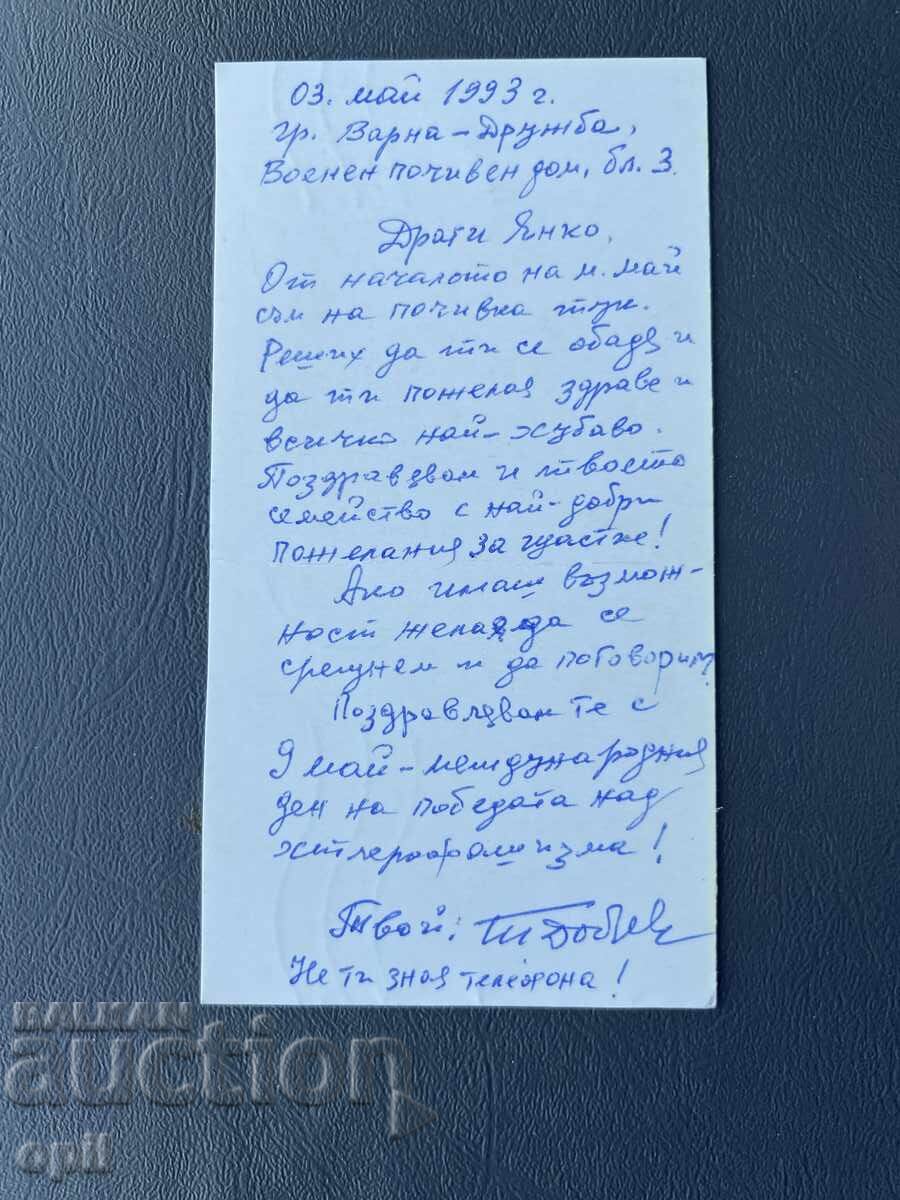 03. май 1993 г.
гр. Варна – Дружба,
Военен почивен дом, бл. 3.
Драги Янко,
От началото на м. май
съм на почивка тук.
Реших да ти се обадя и
да ти пожелая здраве и
всичко най-хубаво.
Поздравявам и твоето
семейство с най-добри
пожелания за щастие!
Ако имаш възмож-
ност желая да се
срещнем и да поговорим?
Поздравлявам те с
9 май – международния
ден на победата над
хитлерофашизма!
Твой:
Не ти зная телефона!
BALKAN
auction
opil